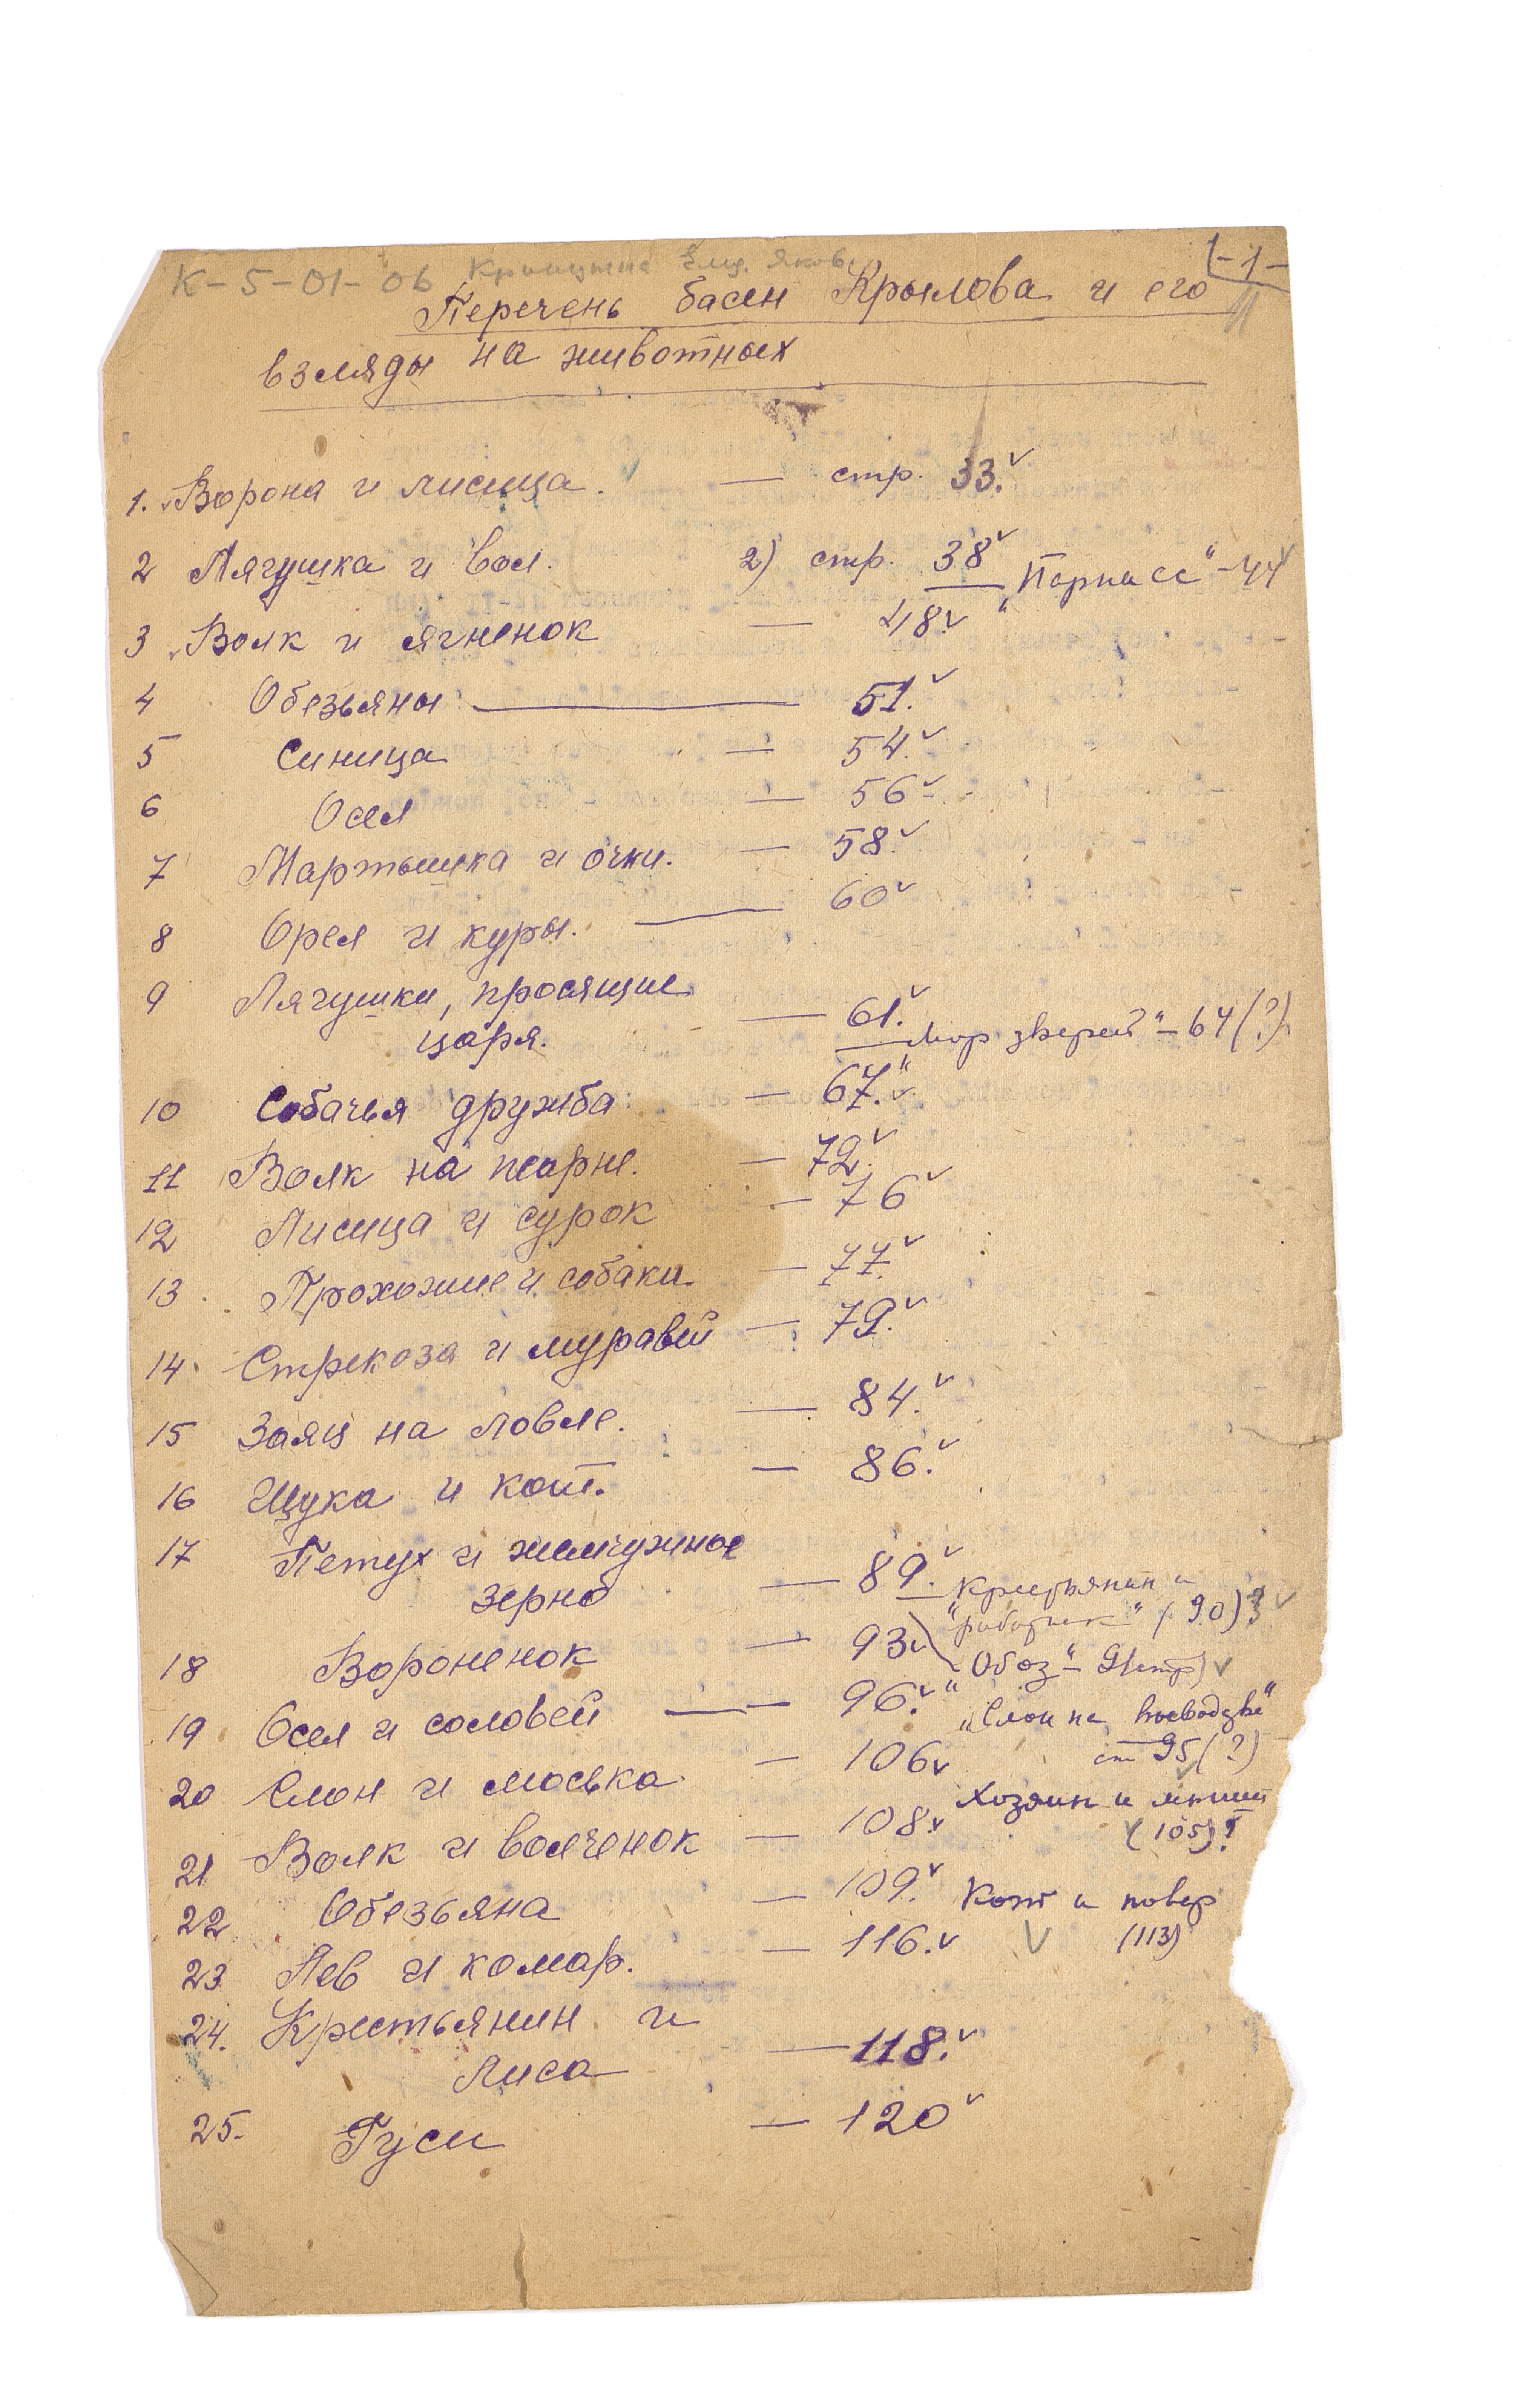 К-5-01-06
-1-
Перечень басен Крылова и его
взгляды на животных
1. Ворона и лисица. — стр. 33.
2 Лягушка и вол. 2) стр. 38
„Парнасс" - 44
3 Волк и ягненок — 48.
4 Обезьяны — 51.
5 Синица — 54.
6 Осел — 56
7 Мартышка и очки. — 58.
8 Орел и куры. — 60
9 Лягушки, просящие
царя. — 61.
„Мор зверей" - 64 (?)
10 Собачья дружба — 67.
11 Волк на псарне. — 72.
12 Лисица и сурок — 76
13 Прохожие и собаки — 77.
14. Стрекоза и муравей — 79.
15 Заяц на ловле. — 84.
16 Щука и кот. — 86.
17 Петух и жемчужное
зерно — 89.
Крестьянин и
"работник" (90)?
18 Вороненок — 93
"Обоз" - 91 стр)
19 Осел и соловей — 96.
„Слон на воеводстве"
ст 95 (?)
20 Слон и моська. — 106
Хозяин и мыши
(105)?
21 Волк и волченок — 108.
22 Обезьяна — 109.
Кот и повар
(113)
23 Лев и комар. — 116.
24. Крестьянин и
лиса — 118.
25. Гуси — 120